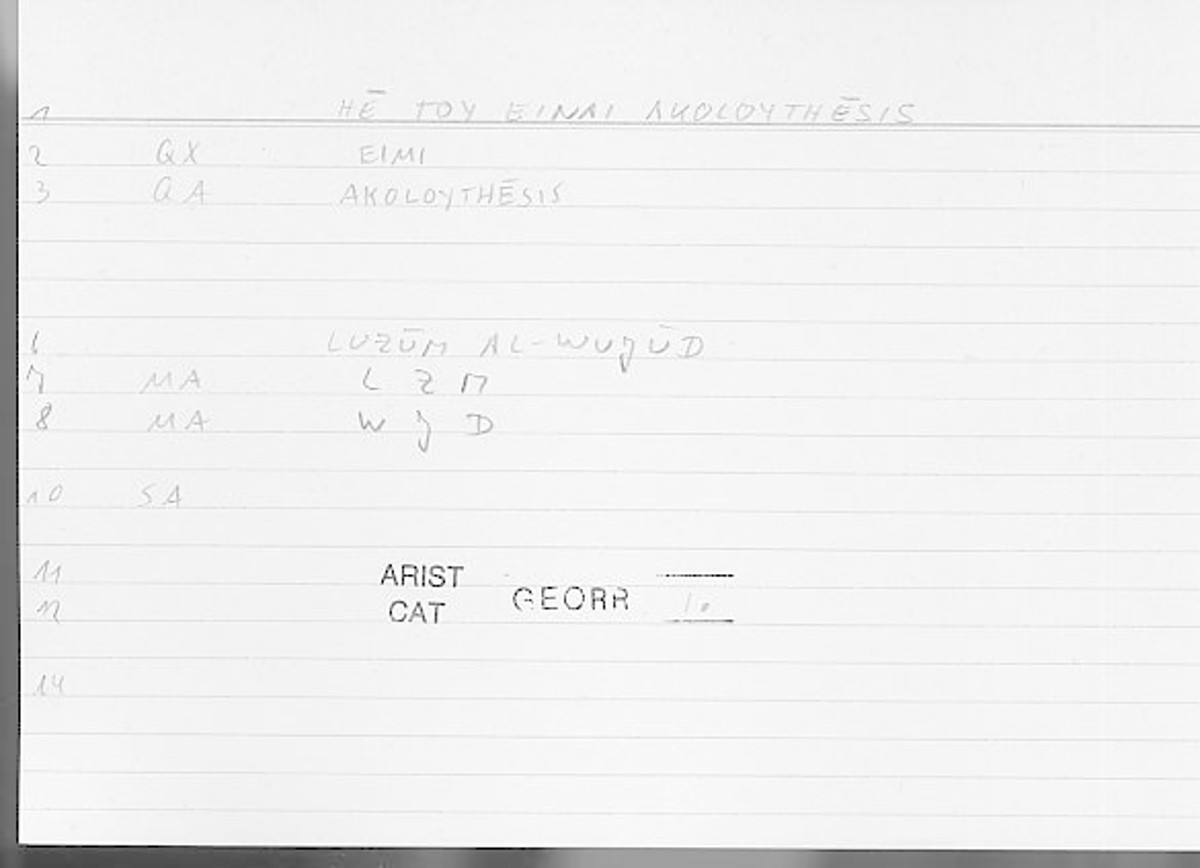 1 HĒ TOY EINAI AKOLOYTHĒSIS
2 QX EIMI
3 QA AKOLOYTHĒSIS
6 LUZŪM AL-WUJŪD
7 MA L Z M
8 MA W J D
10 SA
11 ARIST
GEORR 10
12 CAT
14